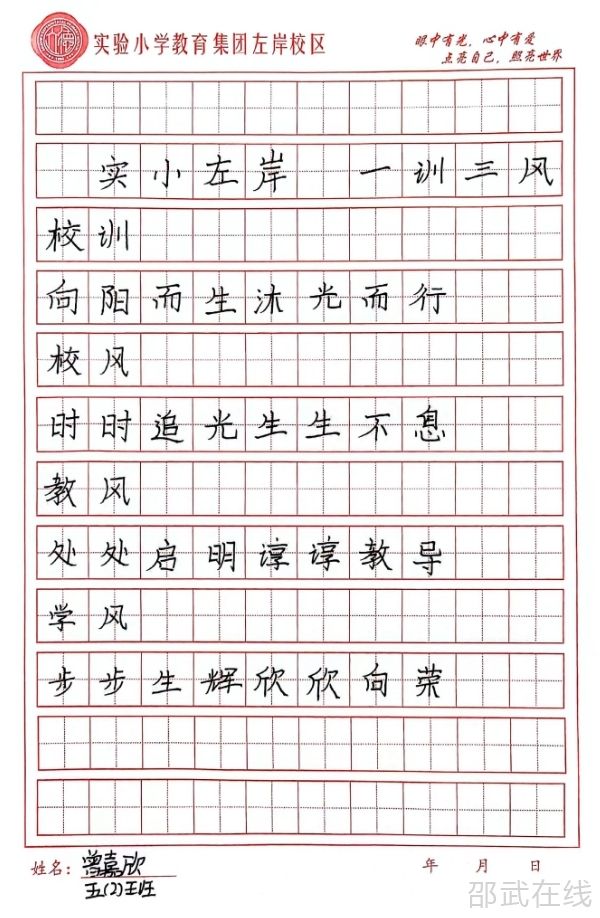 实验小学教育集团左岸校区
眼中有光，心中有爱
点亮自己，照亮世界
实小左岸 一训三风
校训
向阳而生沐光而行
校风
时时追光生生不息
教风
处处启明谆谆教导
学风
步步生辉欣欣向荣
姓名：曾嘉欣 年 月 日
五(2)班
邵武在线